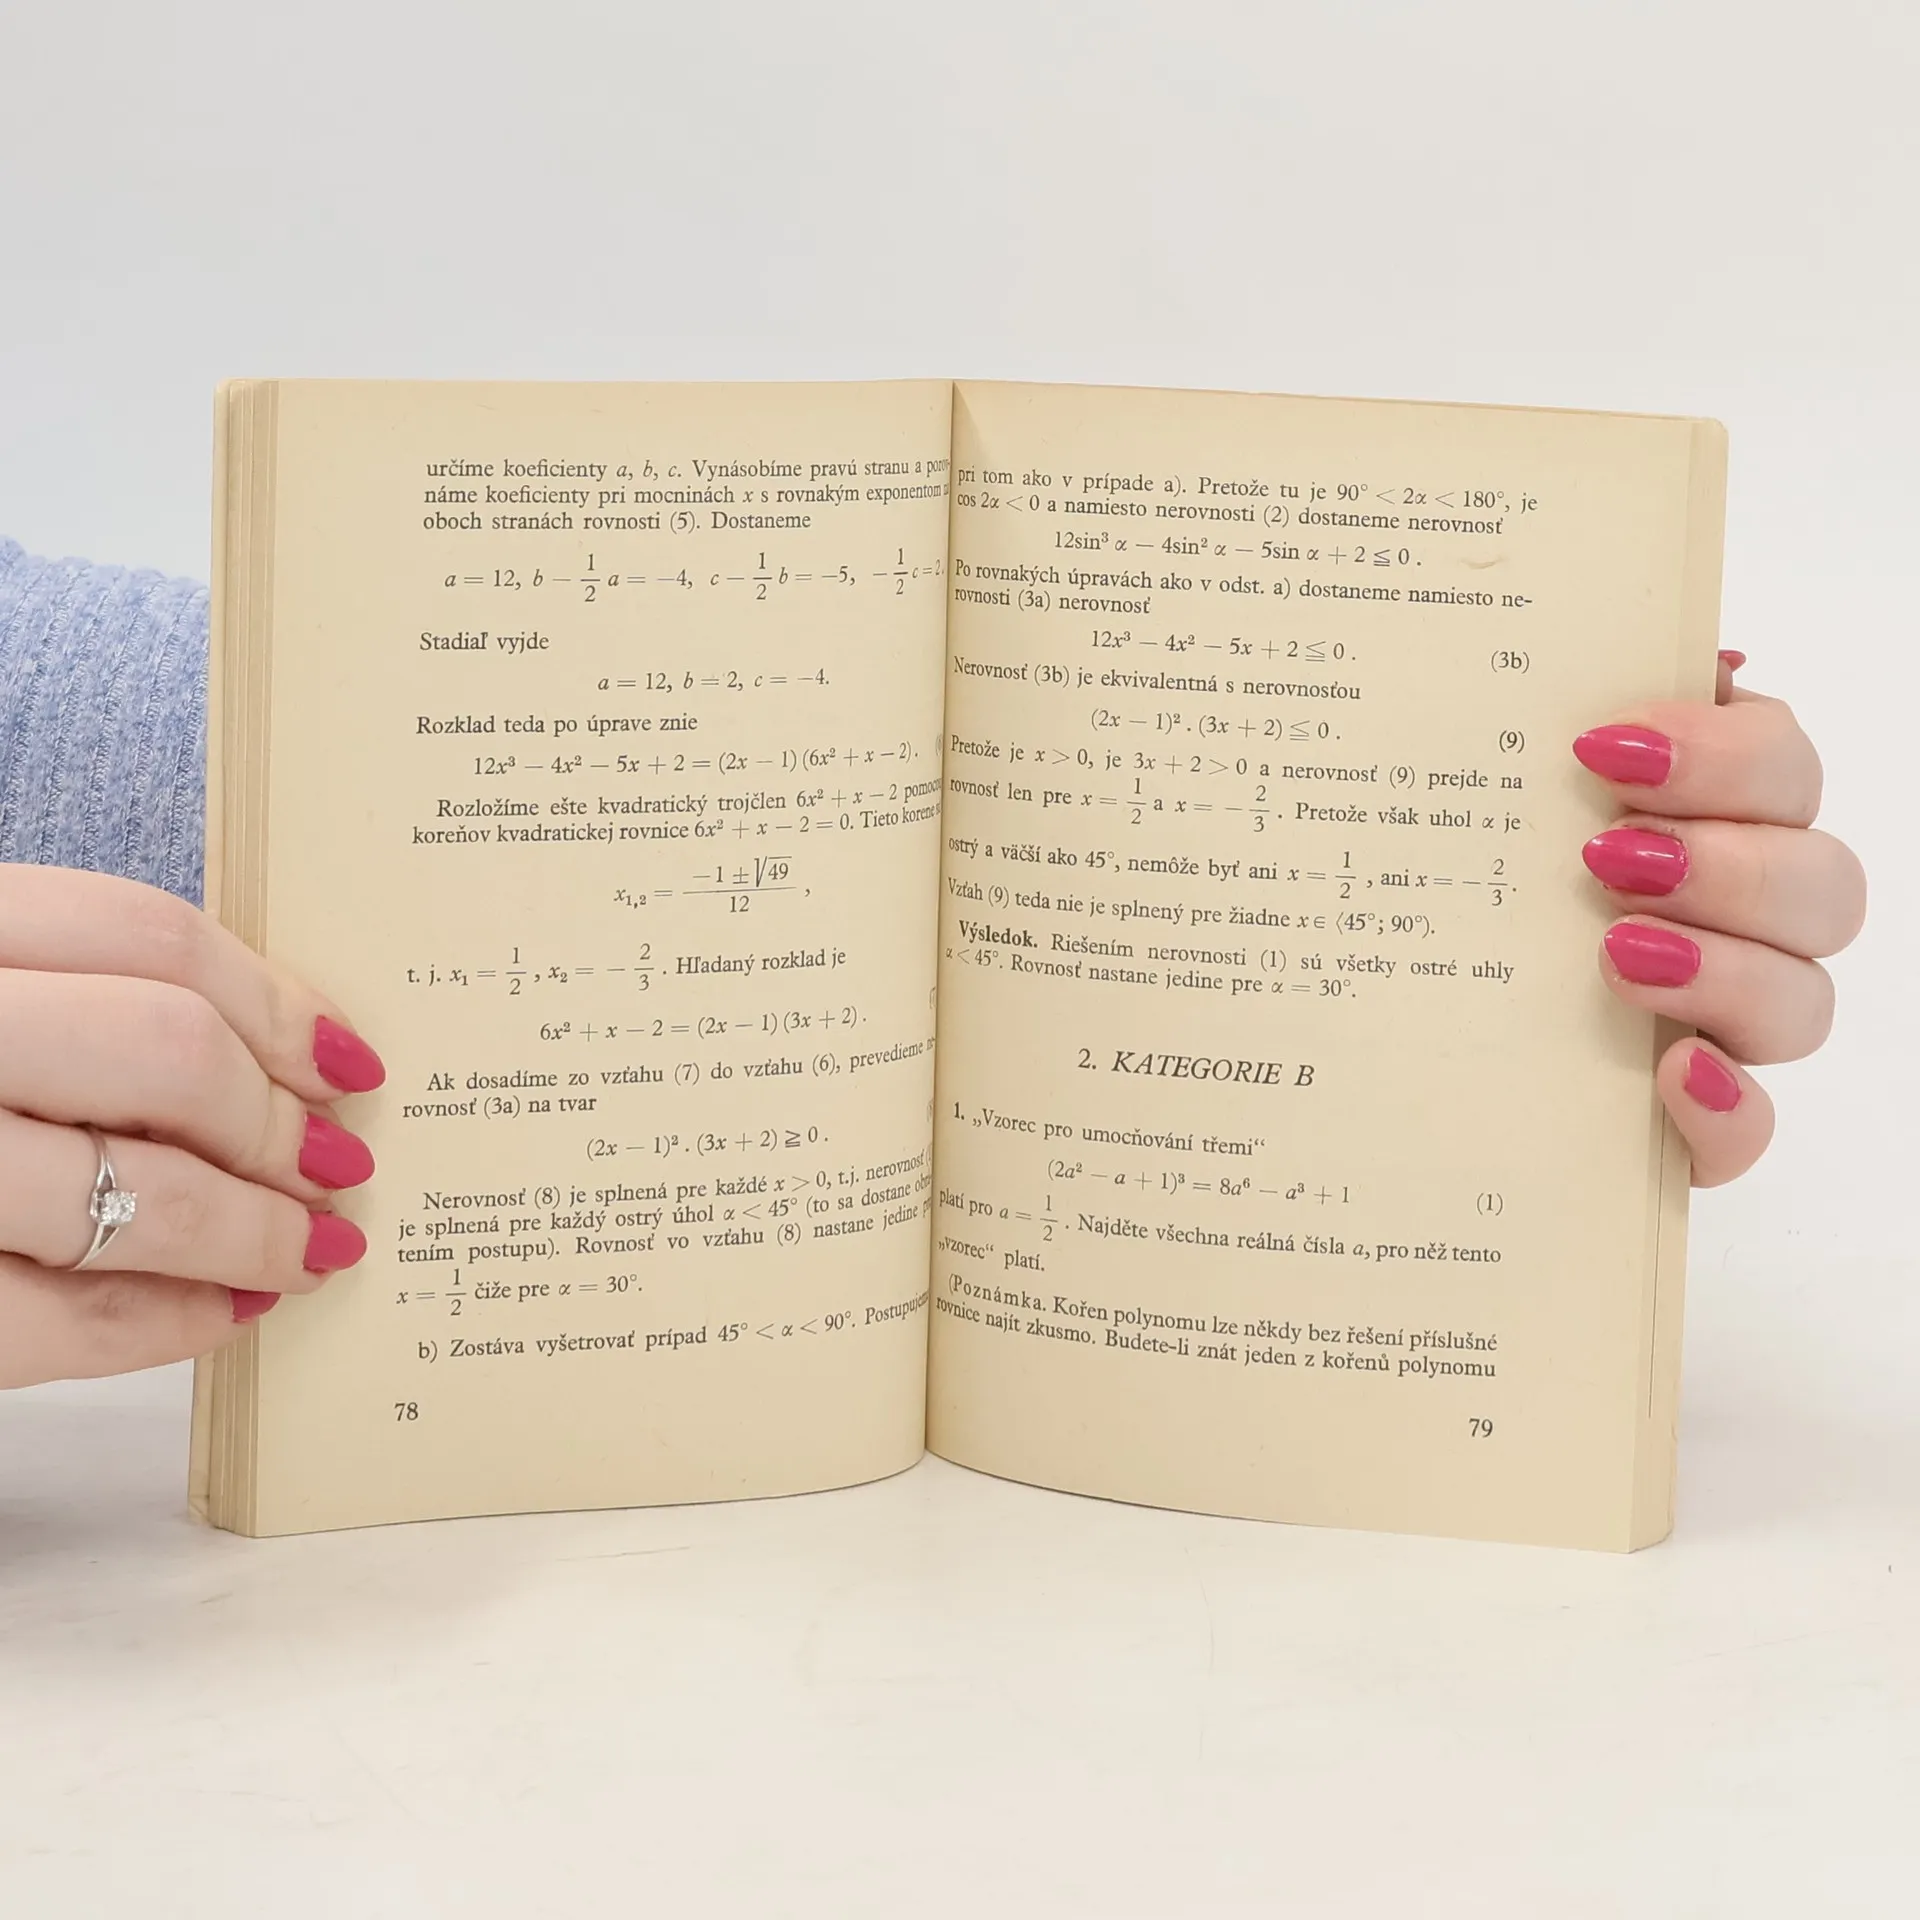 určíme koeficienty a, b, c. Vynásobíme pravú stranu a porov-
náme koeficienty pri mocninách x s rovnakým exponentom
oboch stranách rovnosti (5). Dostaneme
a = 12, b − 1/2 a = −4, c − 1/2 b = −5, − 1/2 c = 2.
Stadiaľ vyjde
a = 12, b = 2, c = −4.
Rozklad teda po úprave znie
12x³ − 4x² − 5x + 2 = (2x − 1) (6x² + x − 2).
Rozložíme ešte kvadratický trojčlen 6x² + x − 2
koreňov kvadratickej rovnice 6x² + x − 2 = 0. Tieto korene
x₁,₂ = (−1 ± √49)/12 ,
t. j. x₁ = 1/2 , x₂ = − 2/3 . Hľadaný rozklad je
6x² + x − 2 = (2x − 1) (3x + 2) .
Ak dosadíme zo vzťahu (7) do vzťahu (6), prevedieme
rovnosť (3a) na tvar
(2x − 1)² . (3x + 2) ≧ 0 .
Nerovnosť (8) je splnená pre každé x > 0, t.j. nerovnosť
je splnená pre každý ostrý úhol α < 45° (to sa dostane
tením postupu). Rovnosť vo vzťahu (8) nastane jedine
x = 1/2 čiže pre α = 30°.
b) Zostáva vyšetrovať prípad 45° < α < 90°. Postupujeme
78
pri tom ako v prípade a). Pretože tu je 90° < 2α < 180°, je
cos 2α < 0 a namiesto nerovnosti (2) dostaneme nerovnosť
12sin³ α − 4sin² α − 5sin α + 2 ≦ 0 .
Po rovnakých úpravách ako v odst. a) dostaneme namiesto ne-
rovnosti (3a) nerovnosť
12x³ − 4x² − 5x + 2 ≦ 0 . (3b)
Nerovnosť (3b) je ekvivalentná s nerovnosťou
(2x − 1)² . (3x + 2) ≦ 0 . (9)
Pretože je x > 0, je 3x + 2 > 0 a nerovnosť (9) prejde na
rovnosť len pre x = 1/2 a x = − 2/3 . Pretože však uhol α je
ostrý a väčší ako 45°, nemôže byť ani x = 1/2 , ani x = − 2/3 .
Vzťah (9) teda nie je splnený pre žiadne x ∈ ⟨45° ; 90°).
Výsledok. Riešením nerovnosti (1) sú všetky ostré uhly
α < 45°. Rovnosť nastane jedine pre α = 30°.
2. KATEGORIE B
1. „Vzorec pro umocňování třemi“
(2a² − a + 1)³ = 8a⁶ − a³ + 1 (1)
platí pro a = 1/2 . Najděte všechna reálná čísla a, pro něž tento
„vzorec“ platí.
(Poznámka. Kořen polynomu lze někdy bez řešení příslušné
rovnice najít zkusmo. Budete-li znát jeden z kořenů polynomu
79